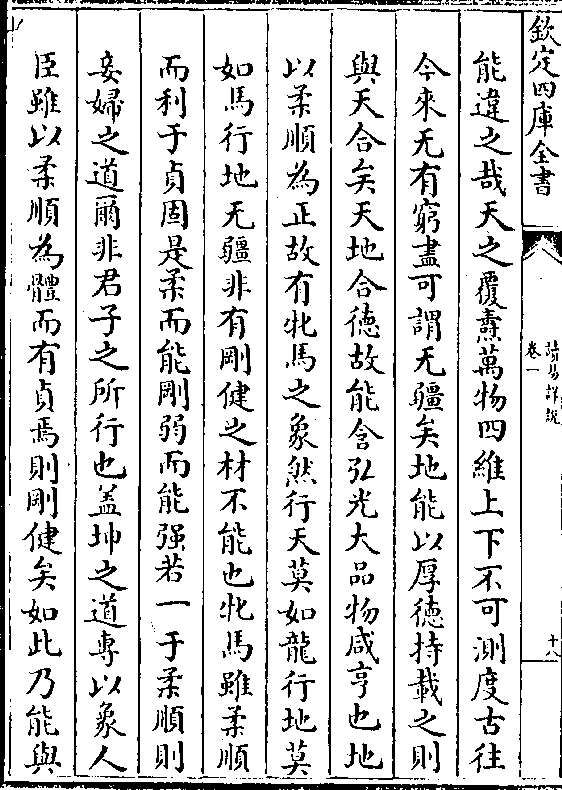 欽定四庫全書
讀易詳説
卷一
十八
能違之哉天之覆燾萬物四維上下不可測度古往
今來无有窮盡可謂无疆矣地能以厚德持載之則
與天合矣天地合德故能含弘光大品物咸亨也地
以柔順為正故有牝馬之象然行天莫如龍行地莫
如馬行地无疆非有剛健之材不能也牝馬雖柔順
而利于貞固是柔而能剛弱而能强若一于柔順則
妾婦之道爾非君子之所行也盖坤之道專以象人
臣雖以柔順為體而有貞焉則剛健矣如此乃能與